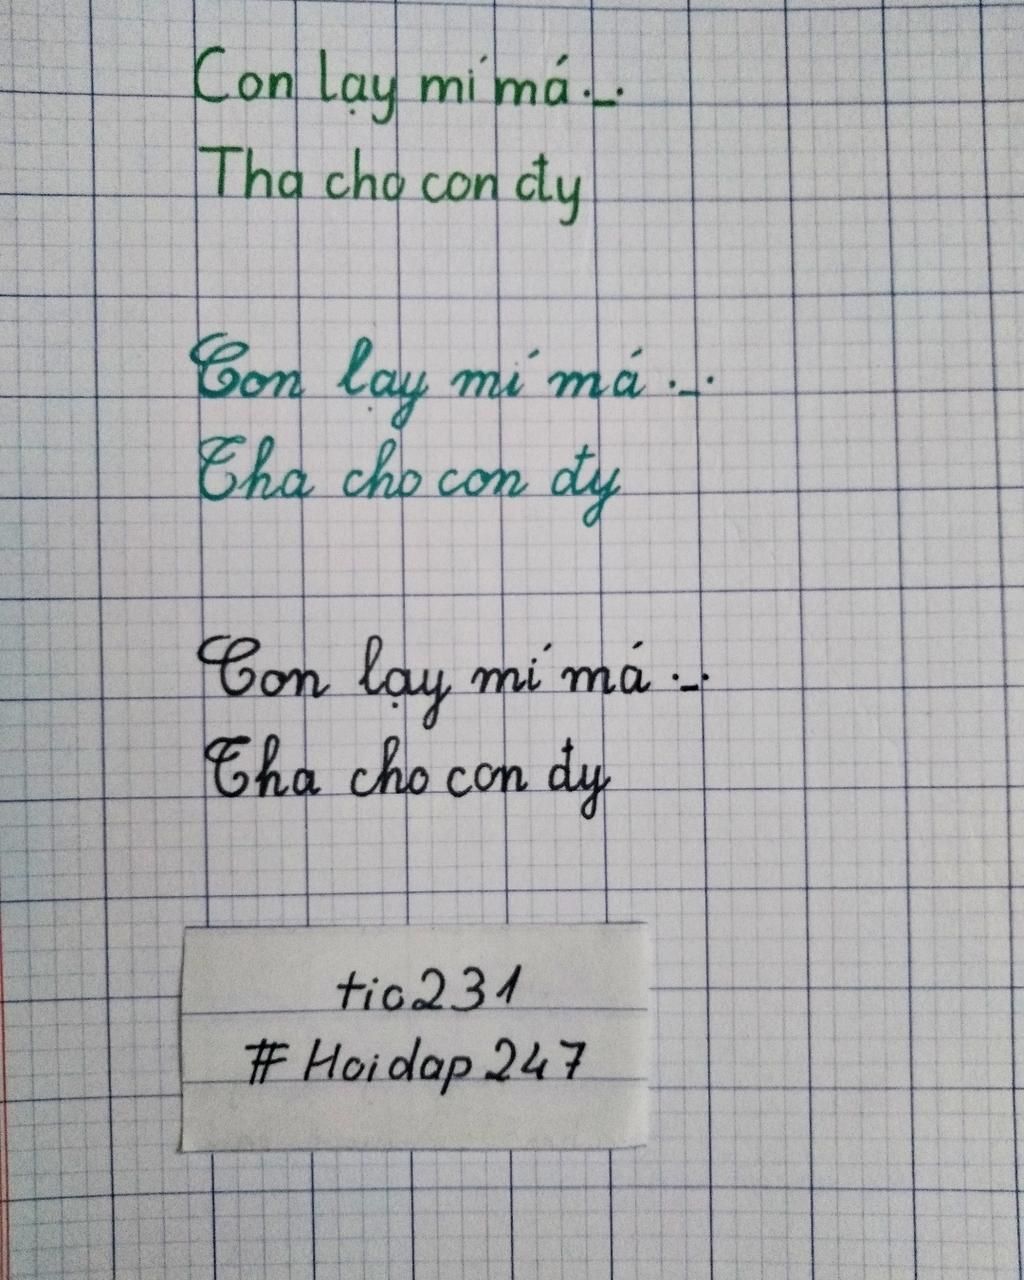 Con lạy mí má ._.
Tha cho con đy
Con lạy mí má ._.
Tha cho con đy
Con lạy mí má ._.
Tha cho con đy
tic231
#Hoidap247